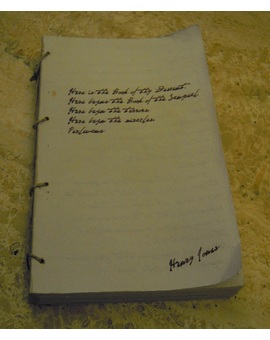 Here is the Book of thy Descent
Here begins the Book of the Sangreal
Here begin the terrors
Here begin the miracles
Perlesvaus
Henry Jones